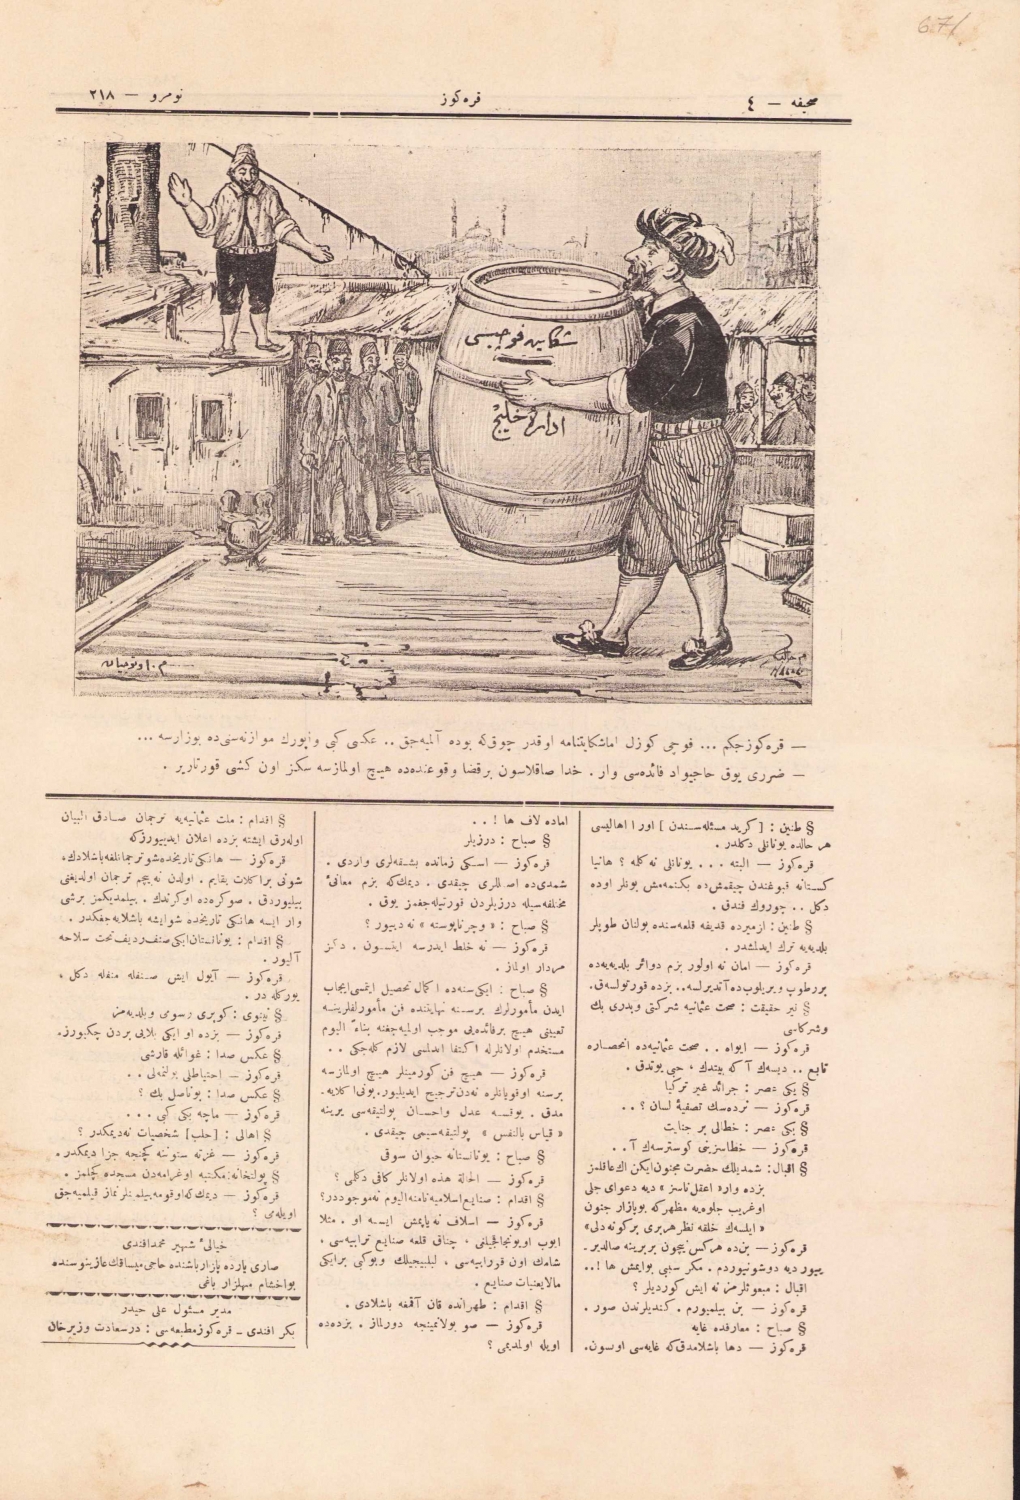 صحیفه — ٤
قره‌كوز
نومرو — ٢١٨
شكایت فوچیسی
ادارهٔ خلیج
— قره‌كوزجكم ... فوچی كوزل اما شكایتنامه اوقدر چوق‌كه بوده آلمیه‌جق .. عكسی كبی واپورك موازنه‌سنی‌ده بوزارسه ...
— ضرری یوق حاجیواد فائده‌سی وار . خدا صاقلاسون برقضا وقوعنده‌ده هیچ اولمازسه سكز اون كشی قورتاریر .
§ طنین : [ كرید مسئله‌سندن ] اورا اهالیسی
هر حالده یونانلی دكلدر .
قره‌كوز — البته ... یونانلی نه‌كله ؟ هانیا
كستانه قبوغندن چیقمش‌ده بكنمه‌مش بونلر اوده
دكل .. چوروك فندق .
§ طنین : ازمیرده قدیفه قلعه‌سنده بولنان طوپلر
بلدیه‌یه ترك ایدلمشدر .
قره‌كوز — امان نه اولور بزم دوائر بلدیه‌یه‌ده
بررطوپ ویریلوب‌ده آندیرلسه .. بزده قورتولسه‌ق .
§ یر حقیقت : صحت عثمانیه شركتی وپدری بك
وشركاسی
قره‌كوز — ایواه .. صحت عثمانیه‌ده انحصاره
تابع .. دیسه‌ك آ كه بیتدك ، حپی یوتدق .
§ یكی عصر : جرائد غیر تركیا
قره‌كوز — نرده‌سك تصفیهٔ لسان ؟ ..
§ یكی عصر : خطالی بر جنایت
قره‌كوز — خطاسزینی كوسترسه‌ك آ ..
§ اقبال : شمدیلك حضرت مجنون‌ایكن اك‌عاقلمز
بزده وار « اعقل‌ناسز » دیه دعوای جلی
اوغریب جلوه‌یه مظهركه بوبازار جنون
« ایلسه‌ك خلقه نظر هربری بركونه دلی »
قره‌كوز — بن‌ده هركس نیچون بربرینه صالدیر
ییور دیه دوشونیوردم . مكر سببی بوایمش ها ! ..
اقبال : مبعوثلرمز نه ایش كوردیلر ؟
قره‌كوز — بن بیلمیورم . كندیلرندن صور .
§ صباح : معارفده غایه
قره‌كوز — دها باشلامدق‌كه غایه‌سی اولسون .
اماده لاف ها ! ..
§ صباح : درزیلر
قره‌كوز — اسكی زمانده بشقه‌لری واردی .
شمدی‌ده اصللری چیقدی . دیمك‌كه بزم معانئ
مختلفه‌سیله درزیلردن قورتیله‌جغمز یوق .
§ صباح : « وچرنایوسته » نه دییور ؟
قره‌كوز — نه خلط ایدرسه ایتسون . دكز
مردار اولماز .
§ صباح : ایكی سنه‌ده اكمال تحصیل ایتمسی ایجاب
ایدن مأمورلرك برسنه نهایتنده فن مأمورلقلرینه
تعیینی هیچ برفائده‌یی موجب اولمیه‌جغنه بناءً الیوم
مستخدم اولانلرله اكتفا ایدلمسی لازم كله‌جكی ..
قره‌كوز — هیچ فن كورمینلر هیچ اولمازسه
برسنه اوقویانلره نه‌دن ترجیح ایدیلیور . بونی اكلایه‌
مدق . یوقسه عدل واحسان پولتیقه‌سی یرینه
« قیاس بالنفس » پولتیقه‌سیمی چیقدی .
§ صباح : یونانستانه حیوان سوقی
قره‌كوز — الحالة هذه اولانلر كافی دكلمی ؟
§ اقدام : صنایع اسلامیه نامنه الیوم نه‌موجوددر ؟
قره‌كوز — اسلاف نه یاپمش ایسه او . مثلا
ایوب اویونجاقجیلغی ، چناق قلعه صنایع ترابیه‌سی ،
شامك اون قورابیه‌سی ، لبلبیجیلك وبوكبی برایكی
مالایعنیات صنایع .
§ اقدام : طهرانده قان آقمغه باشلادی .
قره‌كوز — صو بولانمینجه دورلماز . بزده‌ده
اویله اولمدیمی ؟
§ اقدام : ملت عثمانیه‌یه ترجمان صادق البیان
اوله‌رق ایشته بزده اعلان ایدییورزكه
قره‌كوز — هانكی تاریخده شو ترجمانلغه باشلادك ،
شونی براكلات بقایم . اولدن نه‌یچم ترجمان اولدیغنی
بیلیوردق . صوكره‌ده اوكرندك . بیلمدیكمز برشی
وار ایسه هانكی تاریخده شوایشه باشلایه‌جغكدر .
§ اقدام : یونانستان ایكی صنف ردیف تحت سلاحه
آلیور .
قره‌كوز — آیول ایش صنفله منفله دكل ،
یوركله در .
§ نینوی : كوپری رسومی وبلدیه‌مز
قره‌كوز — بزده او ایكی بلایی بردن چكیورز .
§ عكس صدا : غوائله قارشی
قره‌كوز — احتیاطلی بولنمه‌لی ..
§ عكس صدا : یوناصل بك ؟
قره‌كوز — ماچه بكی كبی ...
§ اهالی : [حلب] شخصیات نه‌دیمكدر ؟
قره‌كوز — غزته ستوننه كچنجه جزا دیمكدر .
§ پولنخانه : مكتبه اوغرامه‌دن مسجده كچلمز .
قره‌كوز — دیمك‌كه اوقومه بیلمینلر نماز قیلمیه‌جق
اویله‌می ؟
خیالئ شهیر محمدافندی
صاری یارده پازارباشنده حاجی میساقك غازینوسنده
بواخشام میهلزار باغی
مدیر مسئول علی حیدر
بكر افندی ـ قره‌كوز مطبعه‌سی : درسعادت وزیرخان
م . اوتوجیان
671